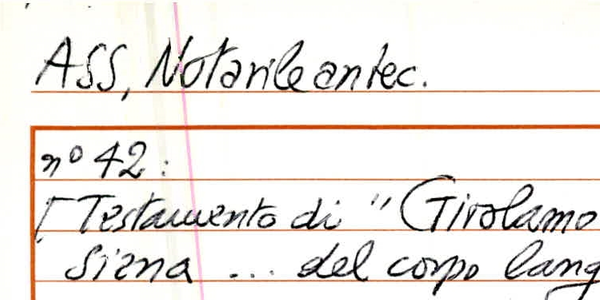 ASS, Notarile antec.
nº 42:
[Testamento di "Girolamo
Siena ... del corpo lang